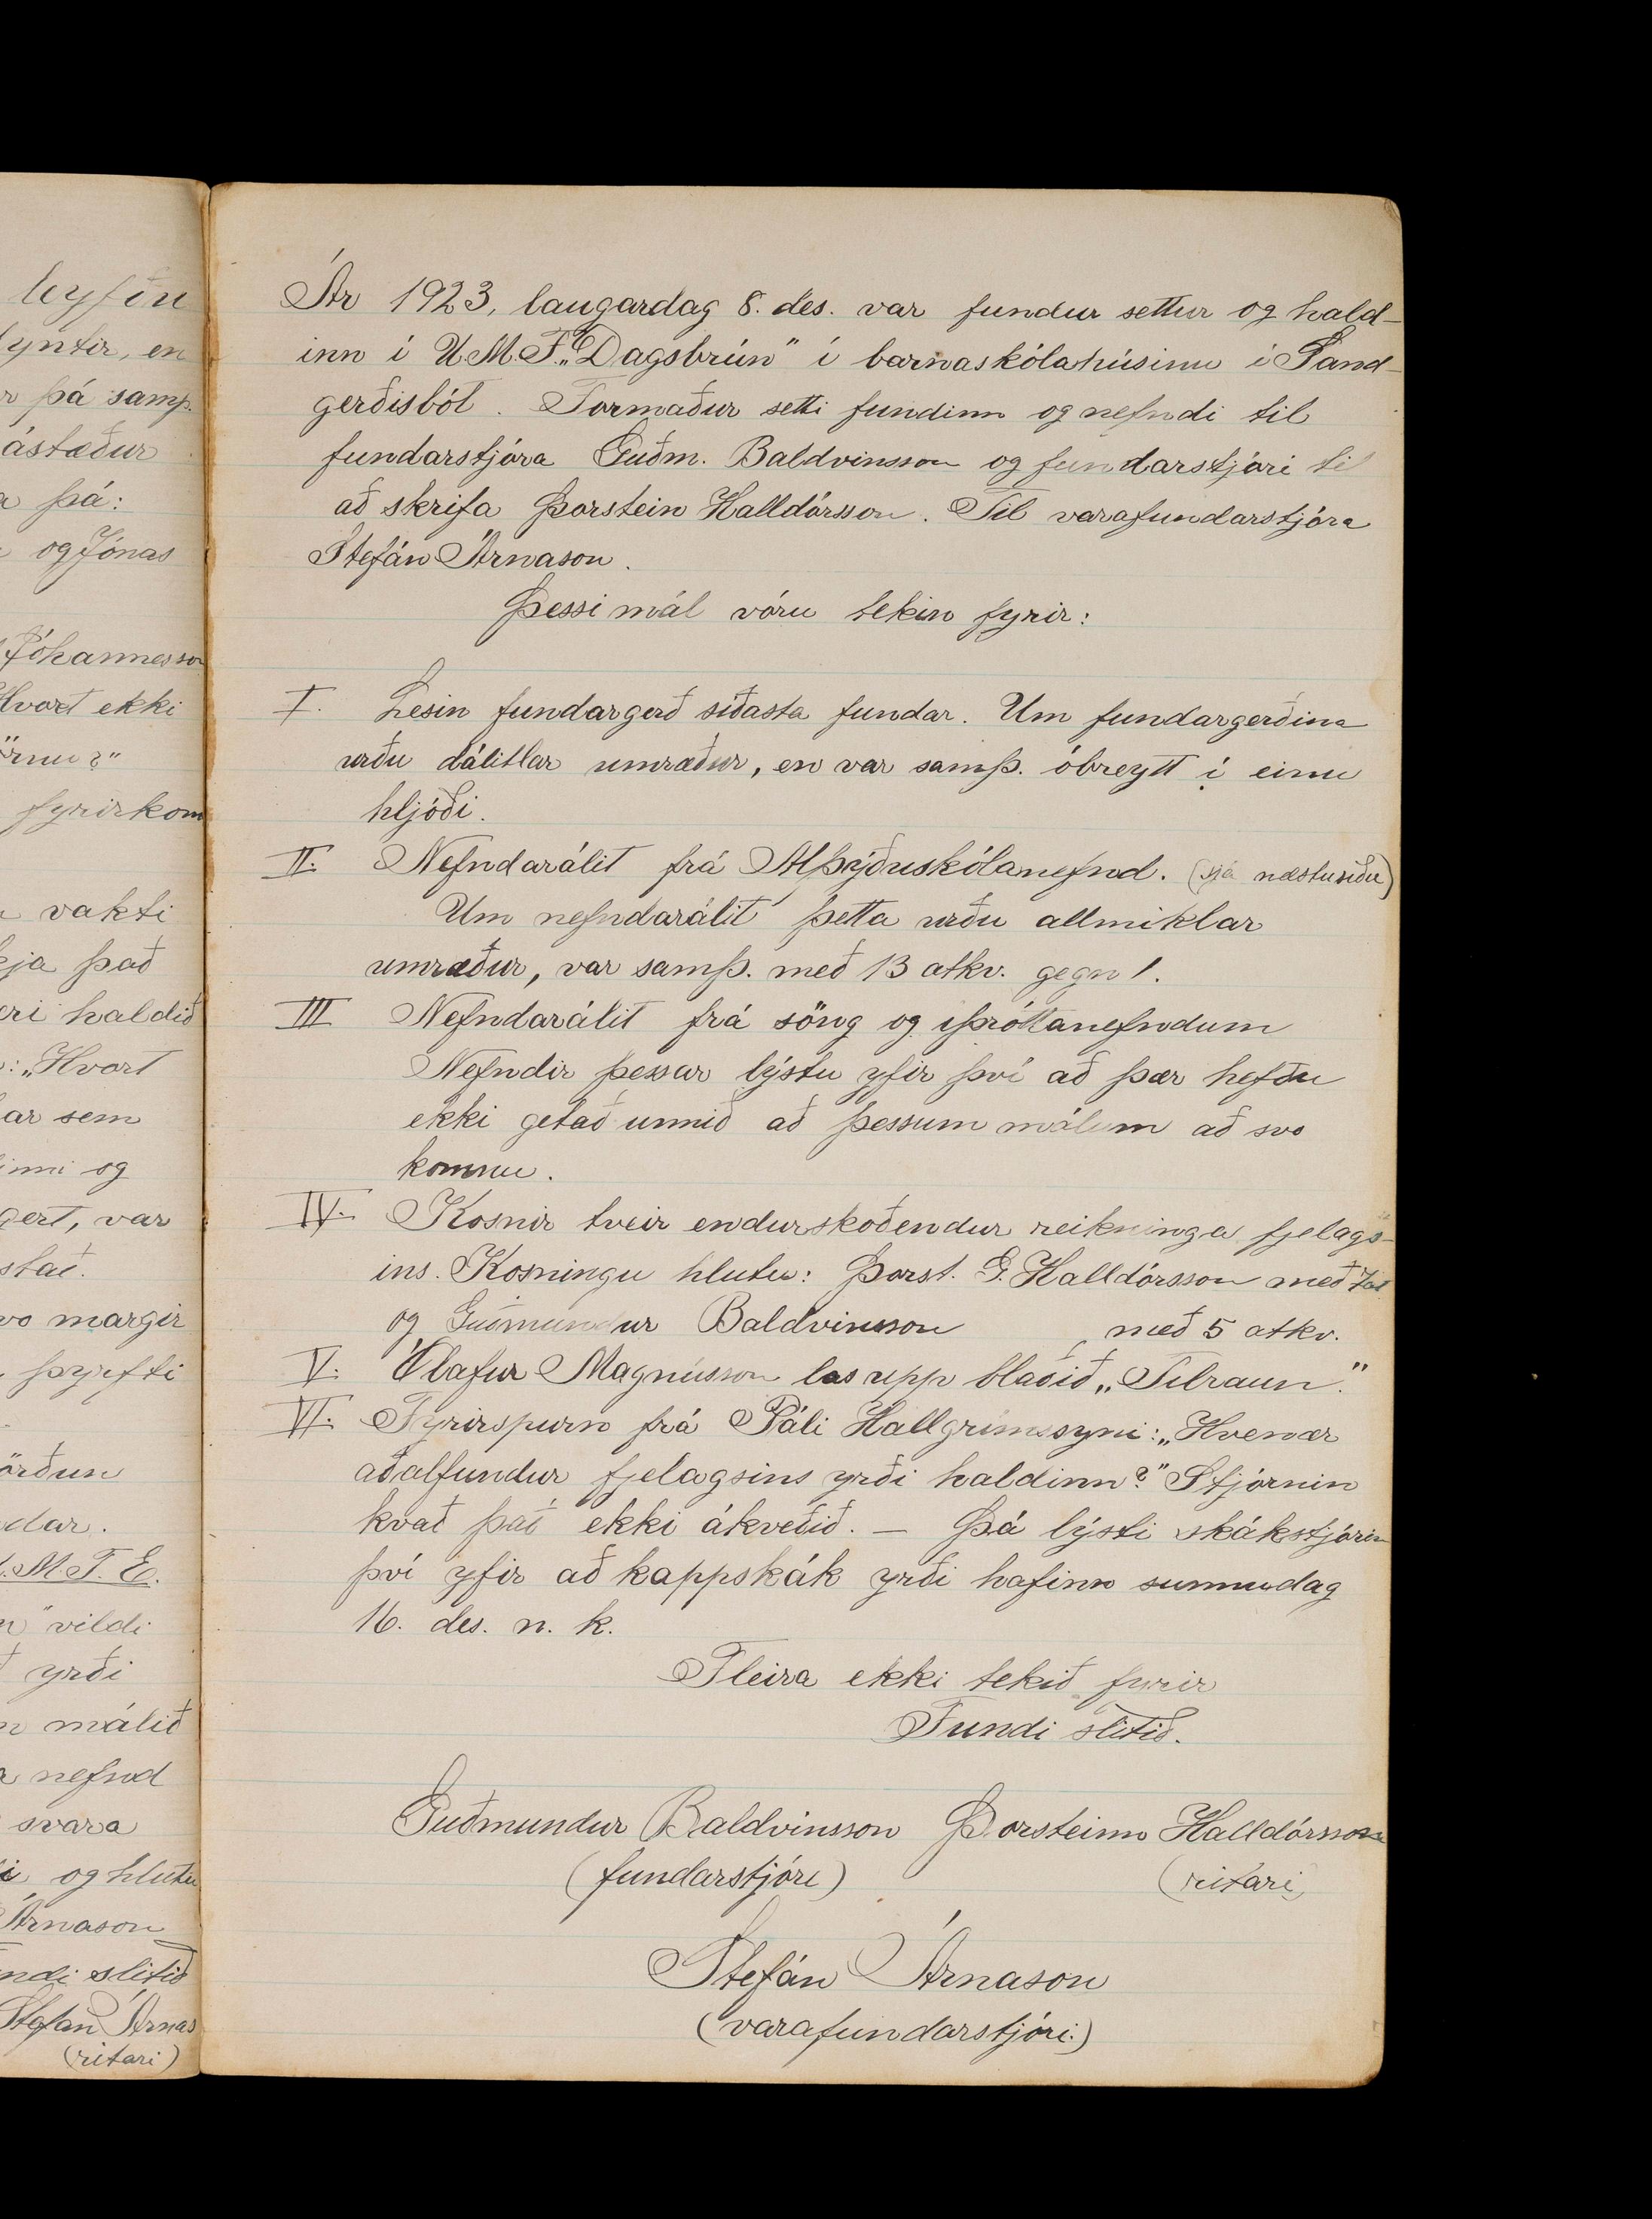 leyfðu
lyntir, en
þá samp.
ástæður
þá:
og Jónas
Jóhannesson
Hvort ekki
fyrirkom
vakti
það
haldið
"Hvort
sem
og
gert, var
margir
þyrfti
U.M.F.E.
vildi
yrði
málið
nefnd
svara
og hlutu
Árnason
slitið
Stefán Árnas
(ritari)
Ár 1923, laugardag 8. des. var fundur settur og hald-
inn í U.M.F. „Dagsbrún" í barnaskólahúsinu í Sand-
gerðisbót. Formaður setti fundinn og nefndi til
fundarstjóra Guðm. Baldvinsson og fundarstjóri til
að skrifa Þorstein Halldórsson. Til varafundarstjóra
Stefán Árnason.
Þessi mál vóru tekin fyrir:
I. Lesin fundargerð síðasta fundar. Um fundargerðina
urðu dálitlar umræður, en var samþ. óbreytt í einu
hljóði.
II. Nefndarálit frá Alþýðuskólanefnd. (sjá næstu síðu)
Um nefndarálit þetta urðu allmiklar
umræður, var samþ. með 13 atkv. gegn 1.
III Nefndarálit frá söng og íþróttanefndum
Nefndir þessar lýstu yfir því að þær hefðu
ekki getað unnið að þessum málum að svo
komnu.
IV. Kosnir tveir endurskoðendur reikninga fjelags-
ins. Kosningu hlutu: Þorst. G. Halldórsson með
og Guðmundur Baldvinsson með 5 atkv.
V. Ólafur Magnússon las upp blaðið „Tilraun."
VI. Fyrirspurn frá Páli Hallgrímssyni: „Hvenær
aðalfundur fjelagsins yrði haldinn?" Stjórnin
kvað það ekki ákveðið. — Þá lýsti skákstjórin
því yfir að kappskák yrði hafinn sunnudag
16. des. n. k.
Fleira ekki tekið fyrir
Fundi slitið.
Guðmundur Baldvinsson Þorsteinn Halldórsson
(fundarstjóri) (ritari)
Stefán Árnason
(varafundarstjóri.)